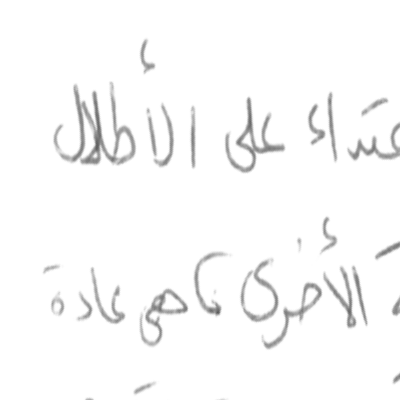 عتداء على الأطلال
الأخرى كما هي عادة